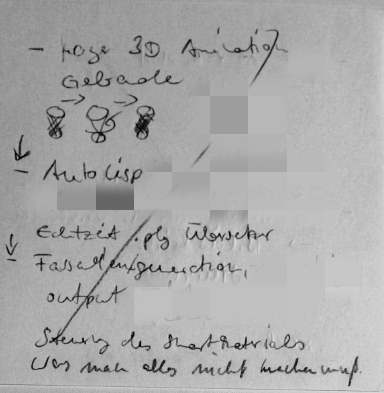 - 3D Animation
Gebäude
- Autolisp
Echtzeit .ply Übersetzer
- Fassadengeneration,
output
Steuerung des Smartmaterials
Was man alles nicht machen muß.